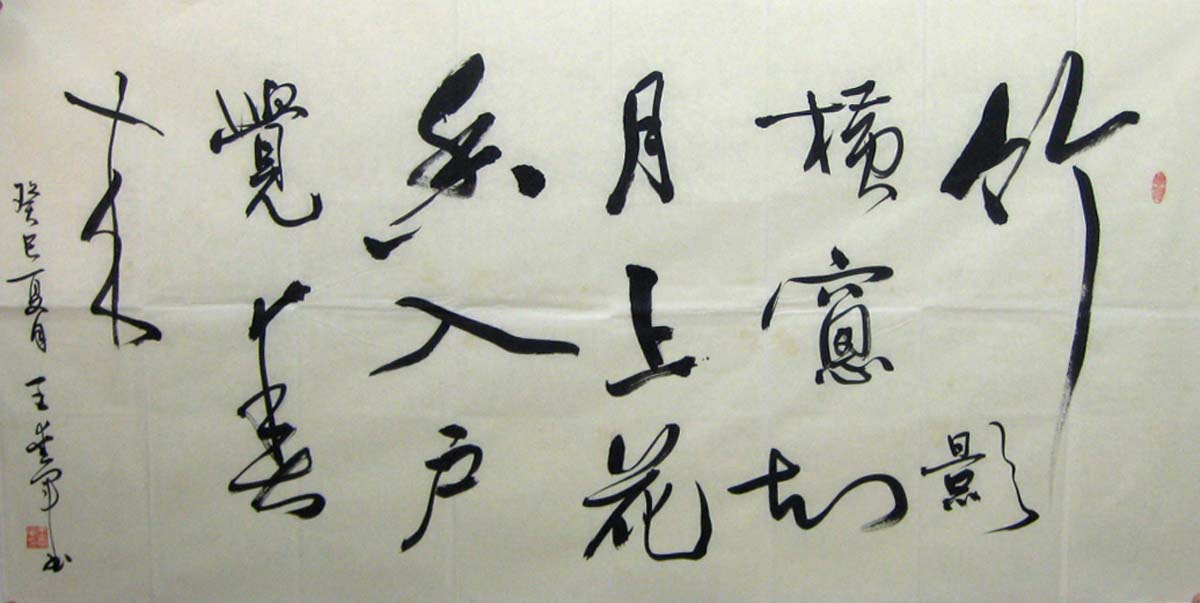 竹影
横窻知
月上花
香入户
覺春
来
癸巳夏月 王军书